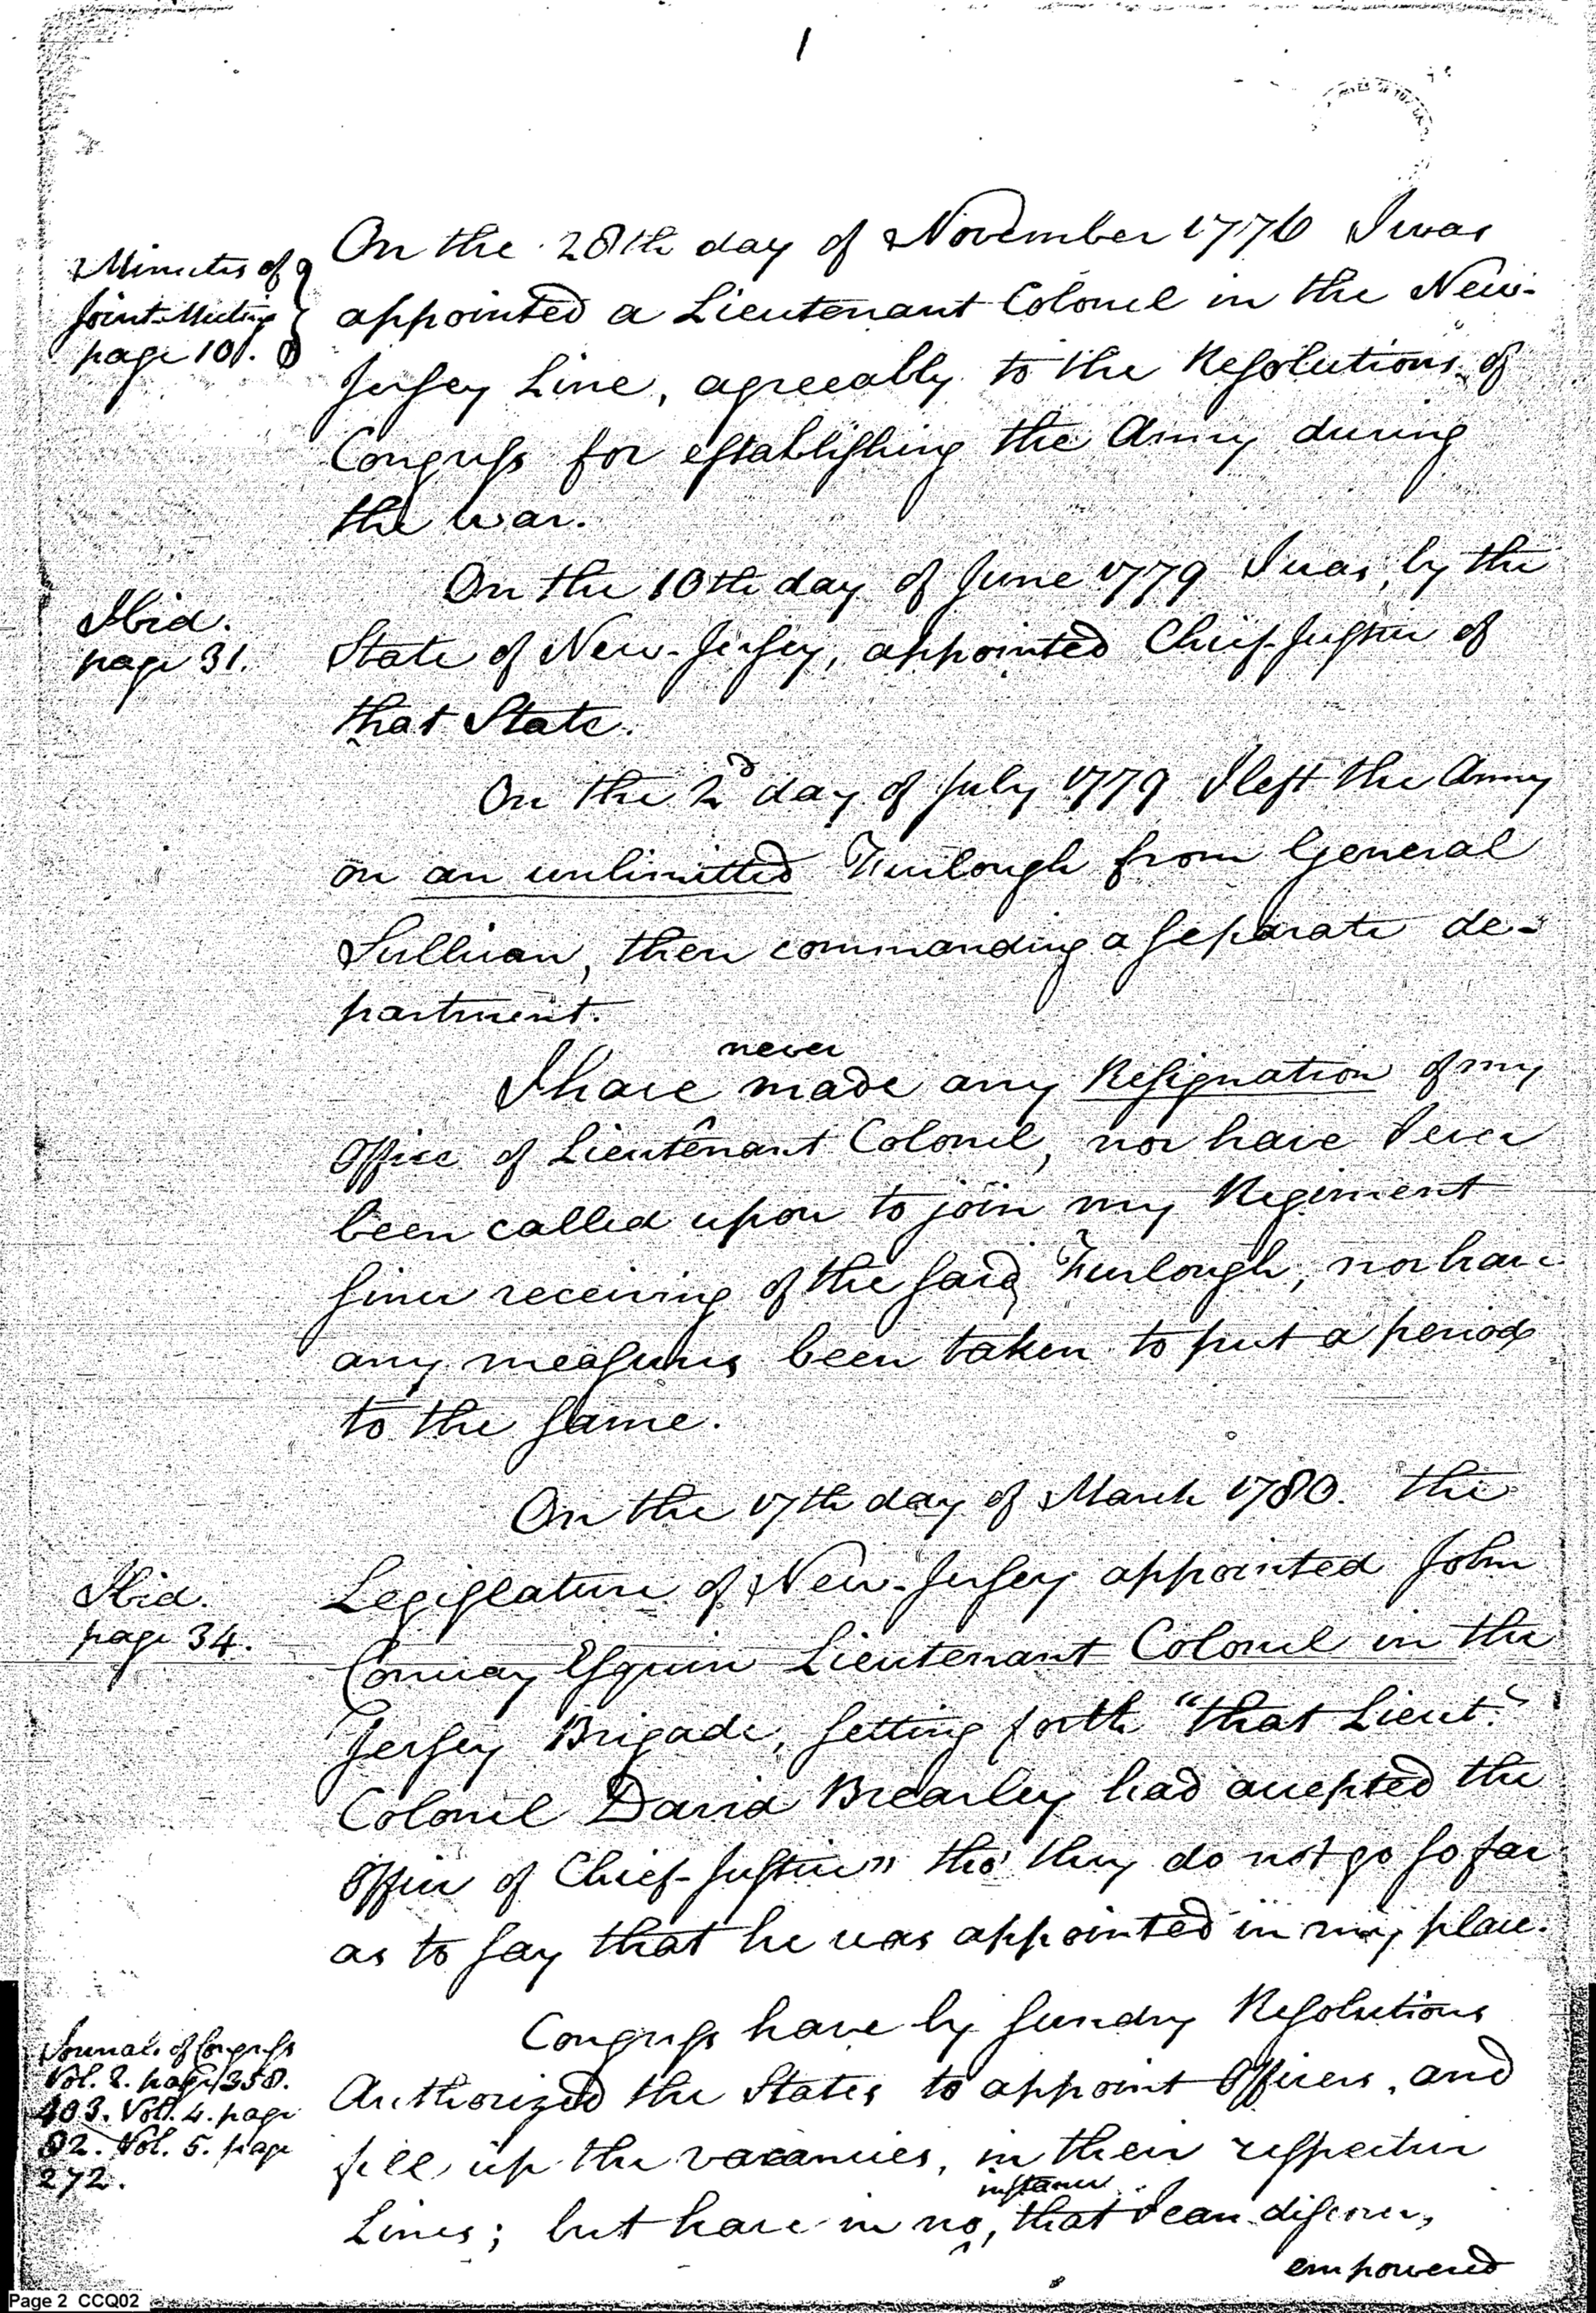 1
Minutes of
Joint-Meeting
page 10.
On the 28th day of November 1776 I was
appointed a Lieutenant Colonel in the New-
Jersey Line, agreeably to the Resolutions of
Congress for establishing the Army during
the war.
Ibid.
page 31.
On the 10th day of June 1779 I was, by the
State of New-Jersey, appointed Chief-Justice of
that State.
On the 2d day of July 1779 I left the Army
on an unlimitted Furlough from General
Sullivan, then commanding a separate de-
partment.
never
I have made any Resignation of my
Office of Lieutenant Colonel, nor have I ever
been called upon to join my Regiment
since receiving of the said Furlough, nor have
any measures been taken to put a period
to the same.
On the 17th day of March 1780. the
Ibid.
page 34.
Legislature of New-Jersey appointed John
Conway Esquire Lieutenant Colonel in the
Jersey Brigade, setting forth "that Lieut.
Colonel David Brearley had accepted the
Office of Chief-Justice" tho' they do not go so far
as to say that he was appointed in my place.
Journals of Congress
Vol. 2. page 358.
403. Vol. 4. page
82. Vol. 5. page
272.
Congress have by sundry Resolutions
Authorized the States to appoint Officers, and
fill up the vacancies, in their respective
instance
Lines; but have in no, that I can discover,
empowered
Page 2 CCQ02